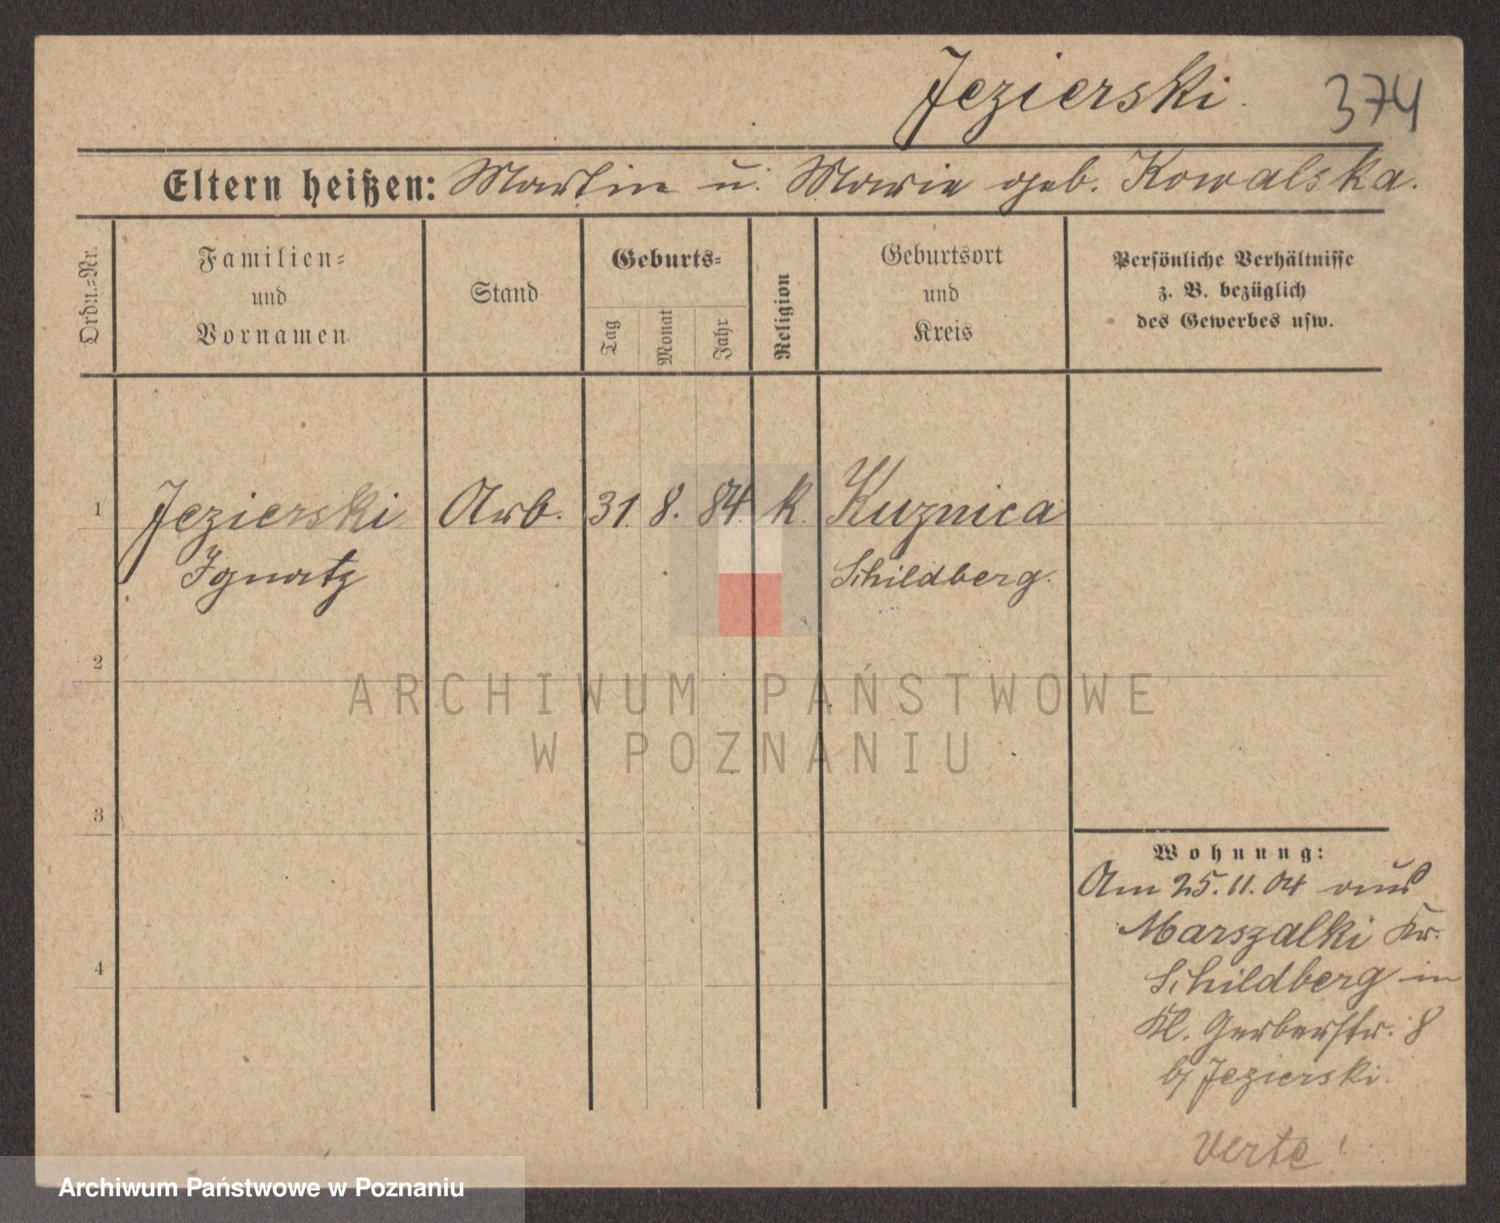 Jezierski.
374
Eltern heißen: Martin u. Marie geb. Kowalska.
Ordn.-Nr.
Familien-
und
Vornamen
Stand
Geburts-
Tag
Monat
Jahr
Religion
Geburtsort
und
Kreis
Persönliche Verhältnisse
z. B. bezüglich
des Gewerbes usw.
1 Jezierski Arb. 31. 8. 84. k. Kuznica
Ignatz Schildberg.
2
ARCHIWUM PAŃSTWOWE
W POZNANIU
3
Wohnung:
Am 25.11.04 aus
Marszalki Kr.
4
Schildberg in
Kl. Gerberstr. 8
b/ Jezierski.
Verte!
Archiwum Państwowe w Poznaniu